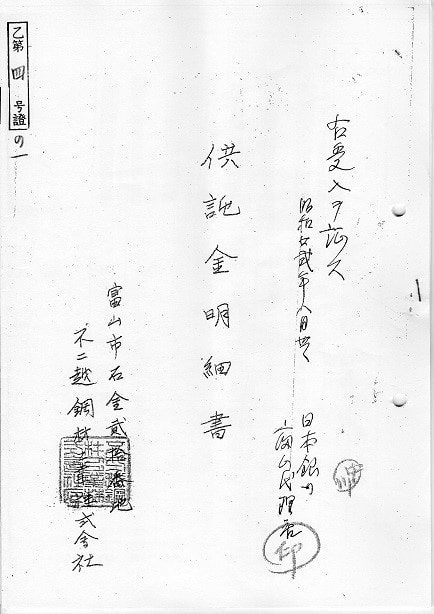 右受入ヲ証ス
昭和廿弐年八月廿
日本銀行
富山代理店
印
供託金明細書
富山市石金貳拾番地
不二越鋼材工業株式会社
乙第四号證の一